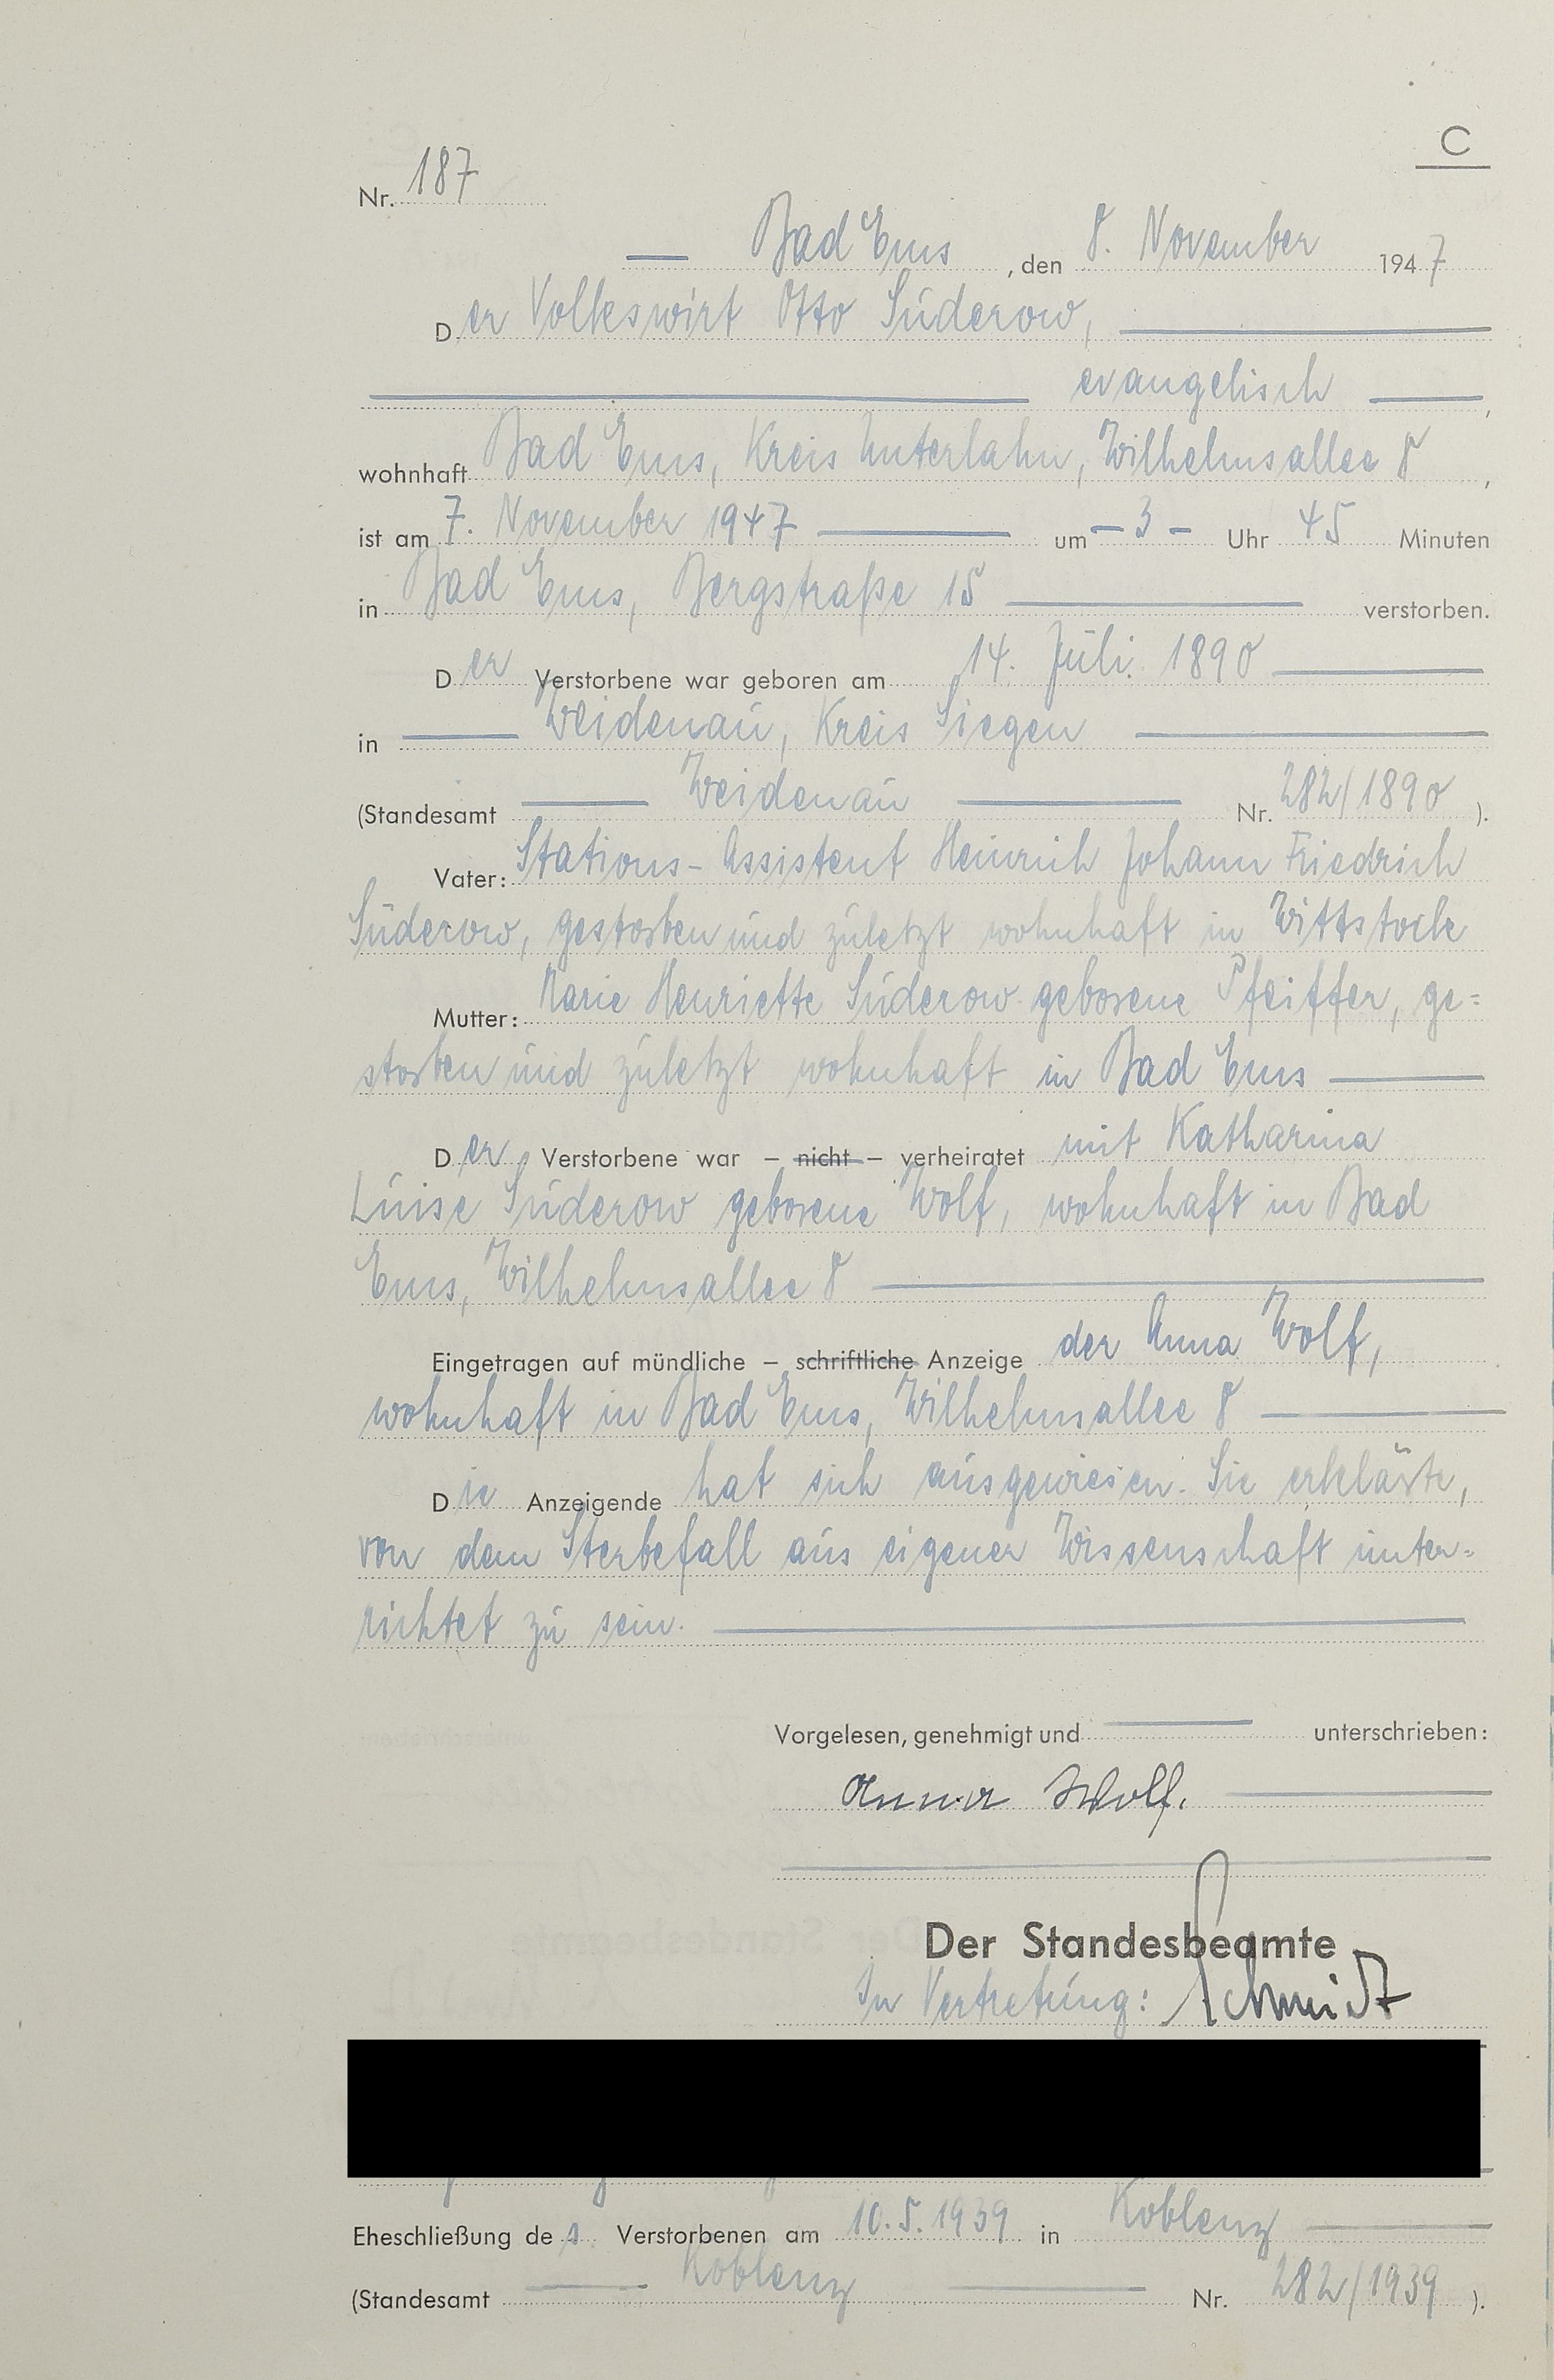 C
Nr. 187
Bad Ems, den 8. November 1947
Der Volkswirt Otto Süderow,
evangelisch,
wohnhaft Bad Ems, Kreis Unterlahn, Wilhelmsallee 8,
ist am 7. November 1947 um - 3 - Uhr 45 Minuten
in Bad Ems, Bergstraße 15 verstorben.
Der Verstorbene war geboren am 14. Juli 1890
in Weidenau, Kreis Siegen
(Standesamt Weidenau Nr. 282/1890).
Vater: Stations-Assistent Heinrich Johann Friedrich
Süderow, gestorben und zuletzt wohnhaft in Wittstock
Mutter: Marie Henriette Süderow geborene Pfeiffer, ge=
storben und zuletzt wohnhaft in Bad Ems
Der Verstorbene war – nicht – verheiratet mit Katharina
Luise Süderow geborene Wolf, wohnhaft in Bad
Ems, Wilhelmsallee 8
Eingetragen auf mündliche – schriftliche Anzeige der Anna Wolf,
wohnhaft in Bad Ems, Wilhelmsallee 8
Die Anzeigende hat sich ausgewiesen. Sie erklärte,
von dem Sterbefall aus eigener Wissenschaft unter=
richtet zu sein.
Vorgelesen, genehmigt und unterschrieben:
Anna Wolf.
Der Standesbeamte
In Vertretung: Schmidt
Eheschließung des Verstorbenen am 10.5.1939 in Koblenz
(Standesamt Koblenz Nr. 282/1939).